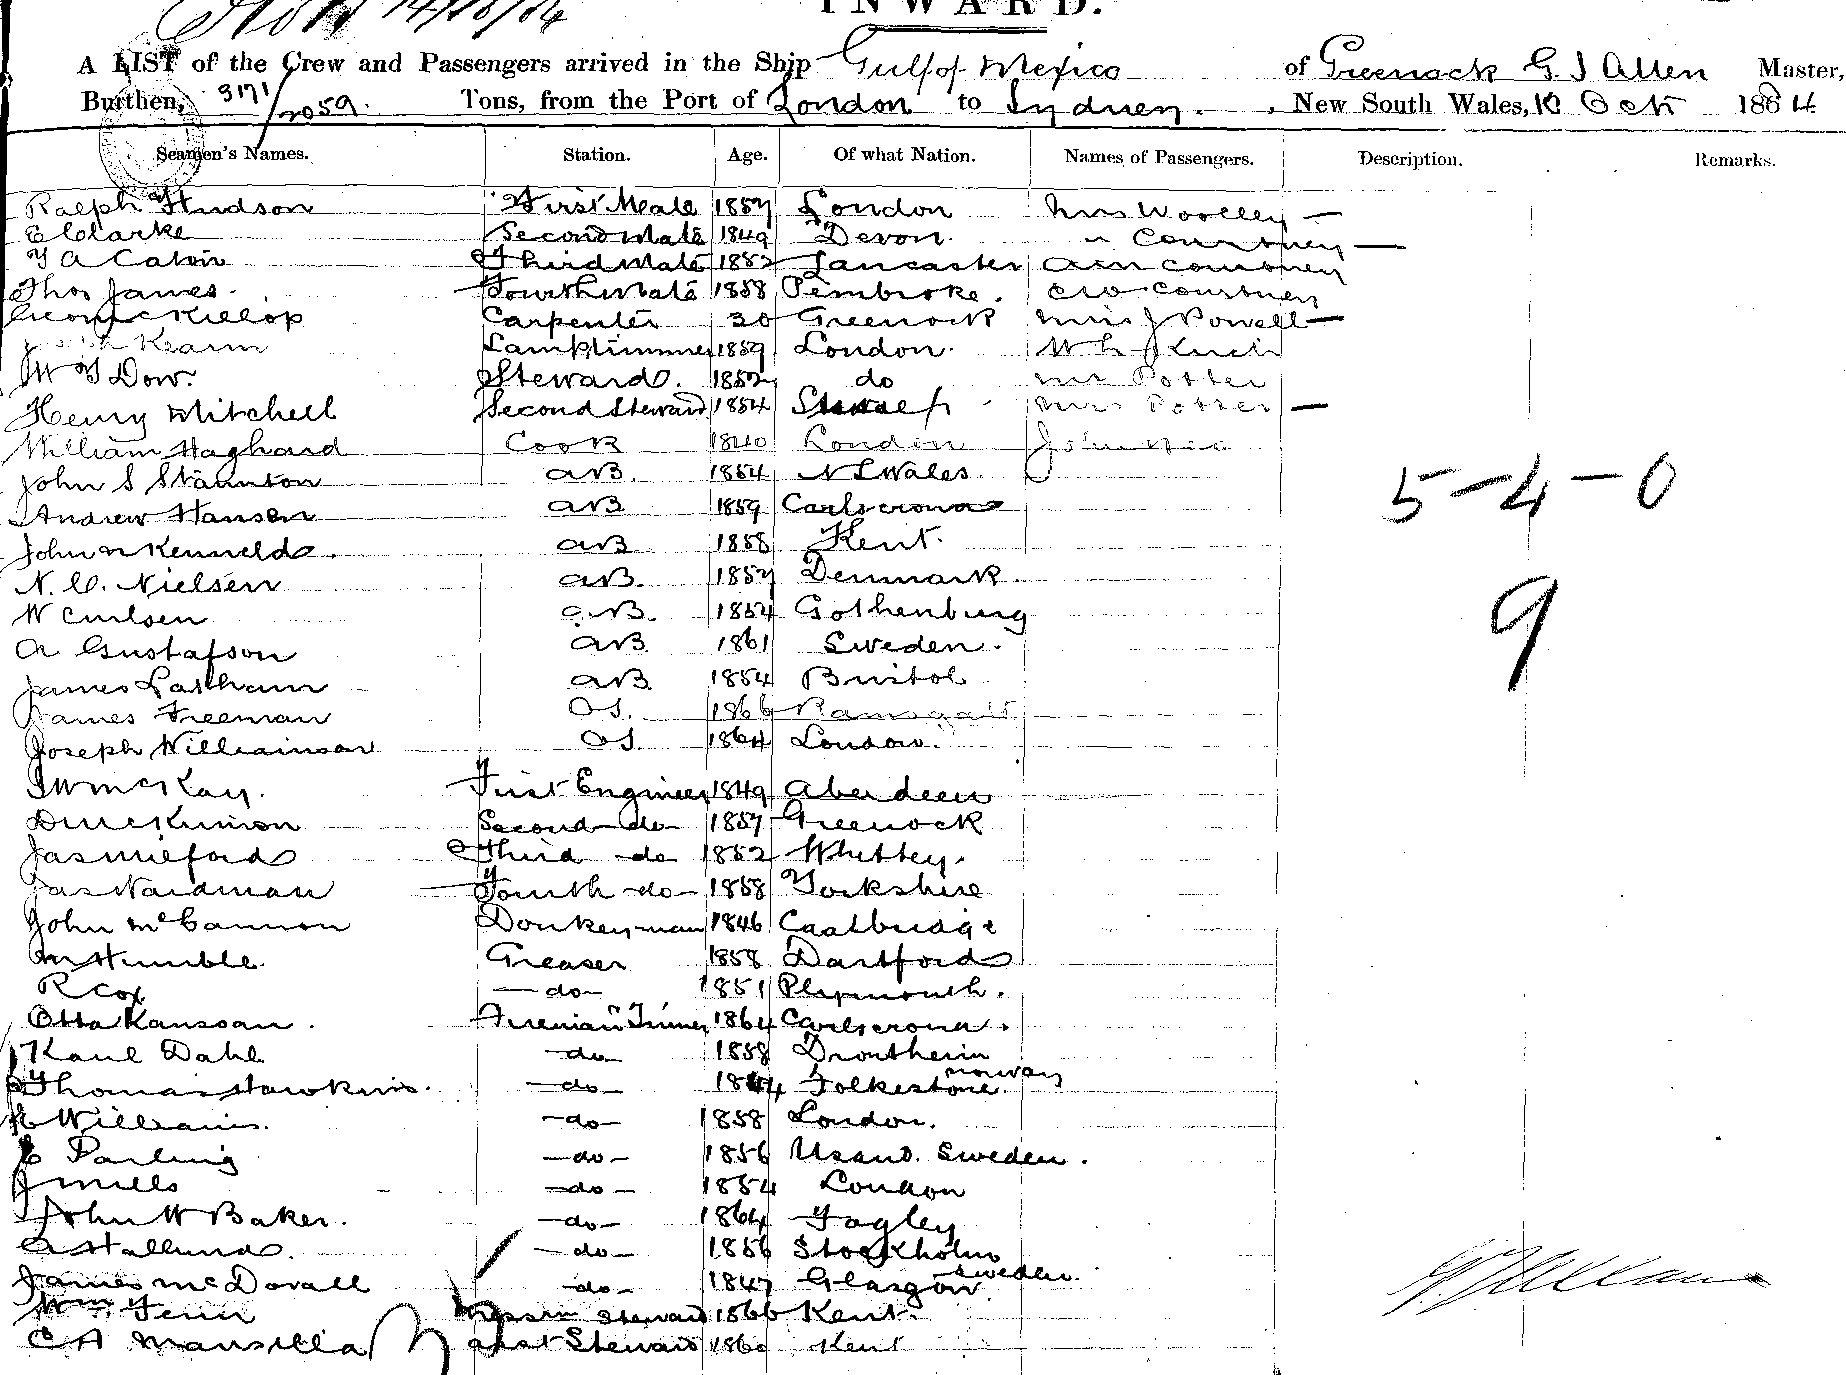 INWARD.
A LIST of the Crew and Passengers arrived in the Ship Gulf of Mexico of Greenock G. J Allen Master,
Burthen, 3171/2059. Tons, from the Port of London to Sydney. New South Wales, 10 Oct 1884
Seamen's Names. Station. Age. Of what Nation. Names of Passengers. Description. Remarks.
Ralph Hudson First Mate 1857 London Mrs Woolley —
E Clarke Second Mate 1849 Devon. " Courtney —
A Third Mate 1852 Lancaster Courtney
Thos James. Fourth Mate 1858 Pembroke. Courtney
McKillop Carpenter 30 Greenock Miss J Powell —
Kearin Lamptrimmer 1859 London.
Dow. Steward. 1852 do Mr Potter
Henry Mitchell Second Steward 1854 Mrs Potter —
William Haghard Cook 1840 London John
John S Staunton AB. 1854 N S Wales. 5-4-0
Andrew Hansen AB 1859 Carlscrona
John Kenneld. AB 1858 Kent.
N. C. Nielsen AB. 1857 Denmark. 9
W Carlsen AB. 1854 Gothenburg
A Gustafson AB. 1861 Sweden.
James Latham AB. 1854 Bristol
James Freeman OS. 1866 Ramsgate
Joseph Williamson OS. 1864 London.
McKay. First Engineer 1849 Aberdeen
D McKinnon Second do 1857 Greenock
Jas Milford Third do 1852 Whitley.
Jas Hardman Fourth do 1858 Yorkshire
John McCannon Donkeyman 1846 Coatbridge
Humble. Greaser 1858 Dartford
R Cox do 1851 Plymouth.
Otto Kansoan. Fireman & Trimmer 1864 Carlscrona.
Karl Dahl do 1858 Drontheim Norway
Thomas Hawkins. do 1844 Folkestone.
Williams. do 1858 London.
E Parling do 1856 Sweden.
J Mills do 1854 London
John W Baker. do 1864 Fagley
A Hallund. do 1856 Stockholm Sweden.
James McDovall do 1847 Glasgow.
Wm Fenn Steward 1866 Kent.
C A Mansella Steward 1860 Kent